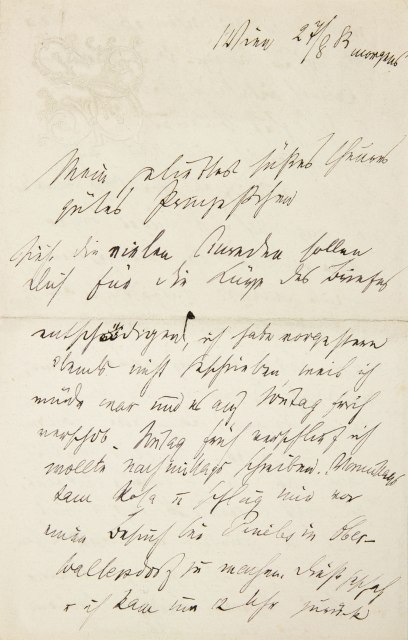 Wien 27/8 83
morgens
Mein geliebtes süßes theures
gutes Prinzeßchen
die vielen Anreden sollen
Dich für die Kürze des Briefes
entschädigen, ich habe vorgestern
abends nicht geschrieben weil ich
müde war und es auf Sonntag früh
verschob. Sontag früh verschlief ich
wollte nachmittags schreiben. Vormittags
kam Rosa u schlug mir vor
einen Besuch bei in Ober-
zu machen. Dieß geschah
u ich kam um 12 Uhr zurück